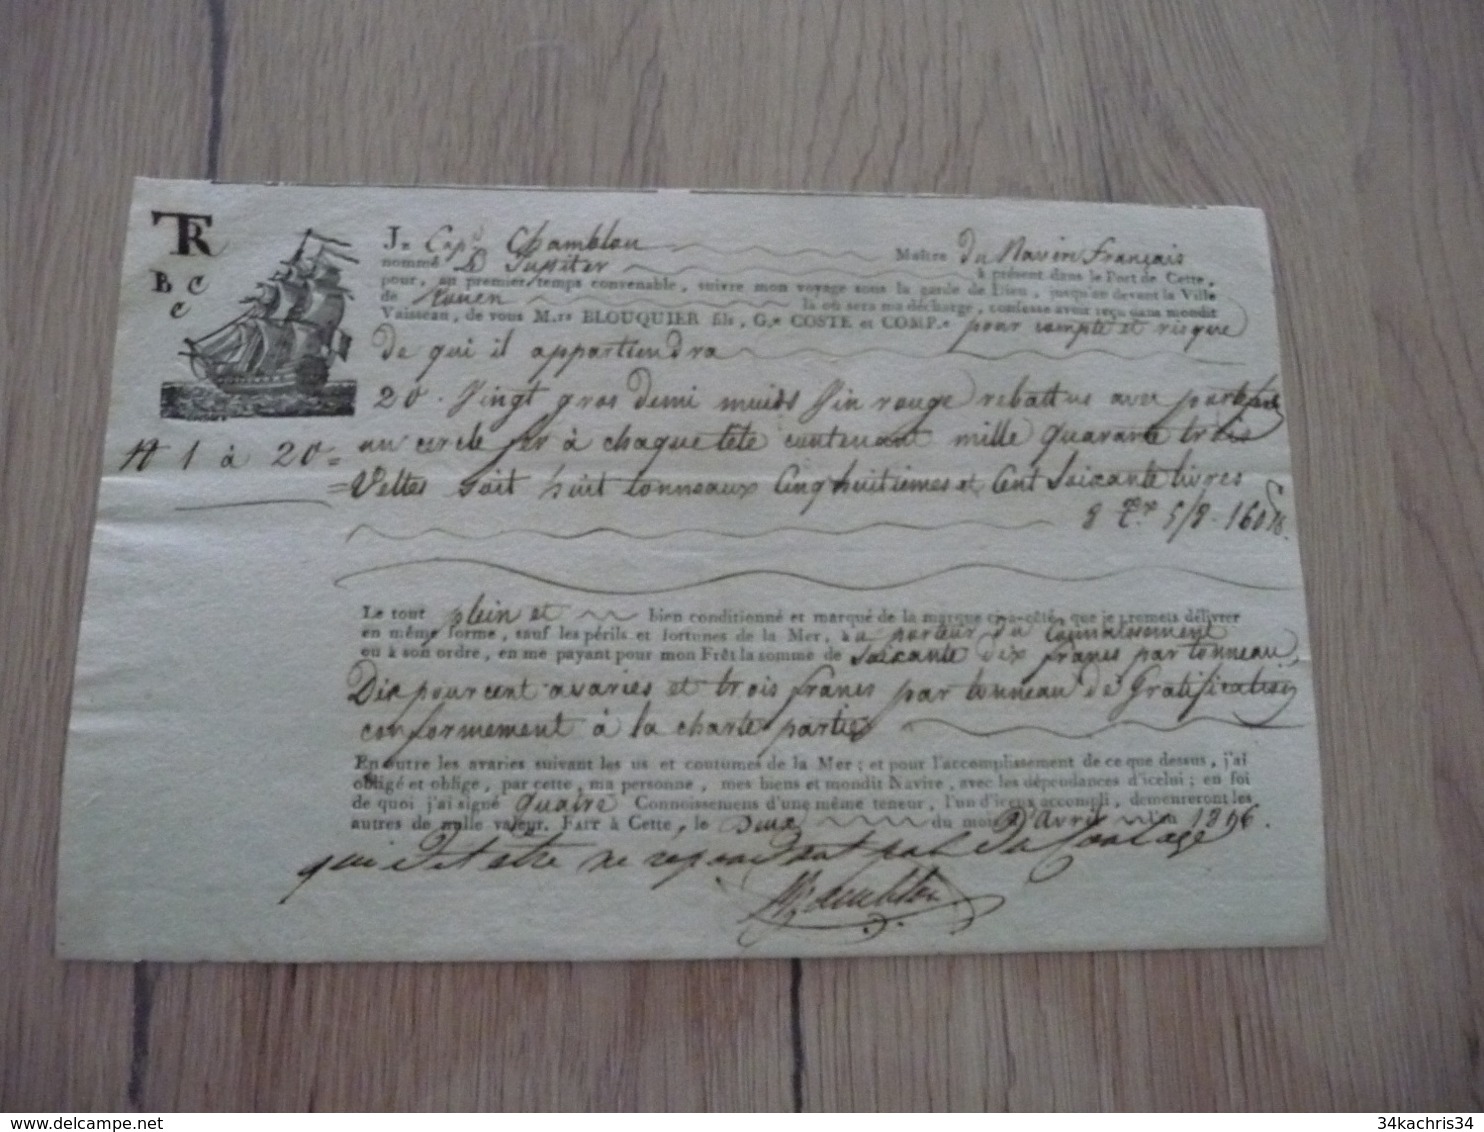 TR
B C
C
Je Cap.ⁿ Chamblou Maître du Navire Français
nommé Le Jupiter à présent dans le Port de Cette,
pour, au premier temps convenable, suivre mon voyage sous la garde de Dieu, jusqu'au devant la Ville
de Rouen là où sera ma décharge, confesse avoir reçu dans mondit
Vaisseau, de vous M.rs BLOUQUIER fils, G.e COSTE et COMP.e pour compte et risque
de qui il appartiendra
20. Vingt gros demi muids Vin rouge rebattus avec
N 1 à 20 = un cercle fer à chaque tête contenant mille quarante trois
= Veltes soit huit tonneaux Cinq huitièmes et Cent Soixante livres
8 Tx 5/8. 160 lb.
Le tout plein et bien conditionné et marqué de la marque ci-à-côté, que je promets délivrer
en même forme, sauf les périls et fortunes de la Mer, à au porteur du Connoissement
ou à son ordre, en me payant pour mon Frêt la somme de Soixante dix francs par tonneau,
Dix pour cent avaries et trois francs par tonneau de Gratification
conformement à la charte partie
En outre les avaries suivant les us et coutumes de la Mer; et pour l'accomplissement de ce que dessus, j'ai
obligé et oblige, par cette, ma personne, mes biens et mondit Navire, avec les dépendances d'icelui; en foi
de quoi j'ai signé quatre Connoissemens d'une même teneur, l'un d'iceux accompli, demeureront les
autres de nulle valeur. FAIT à Cette, le Deux du mois d'Avril l'an 1806.
qui dit être ne répondant pas du Coulage
Chamblou
34kachris34